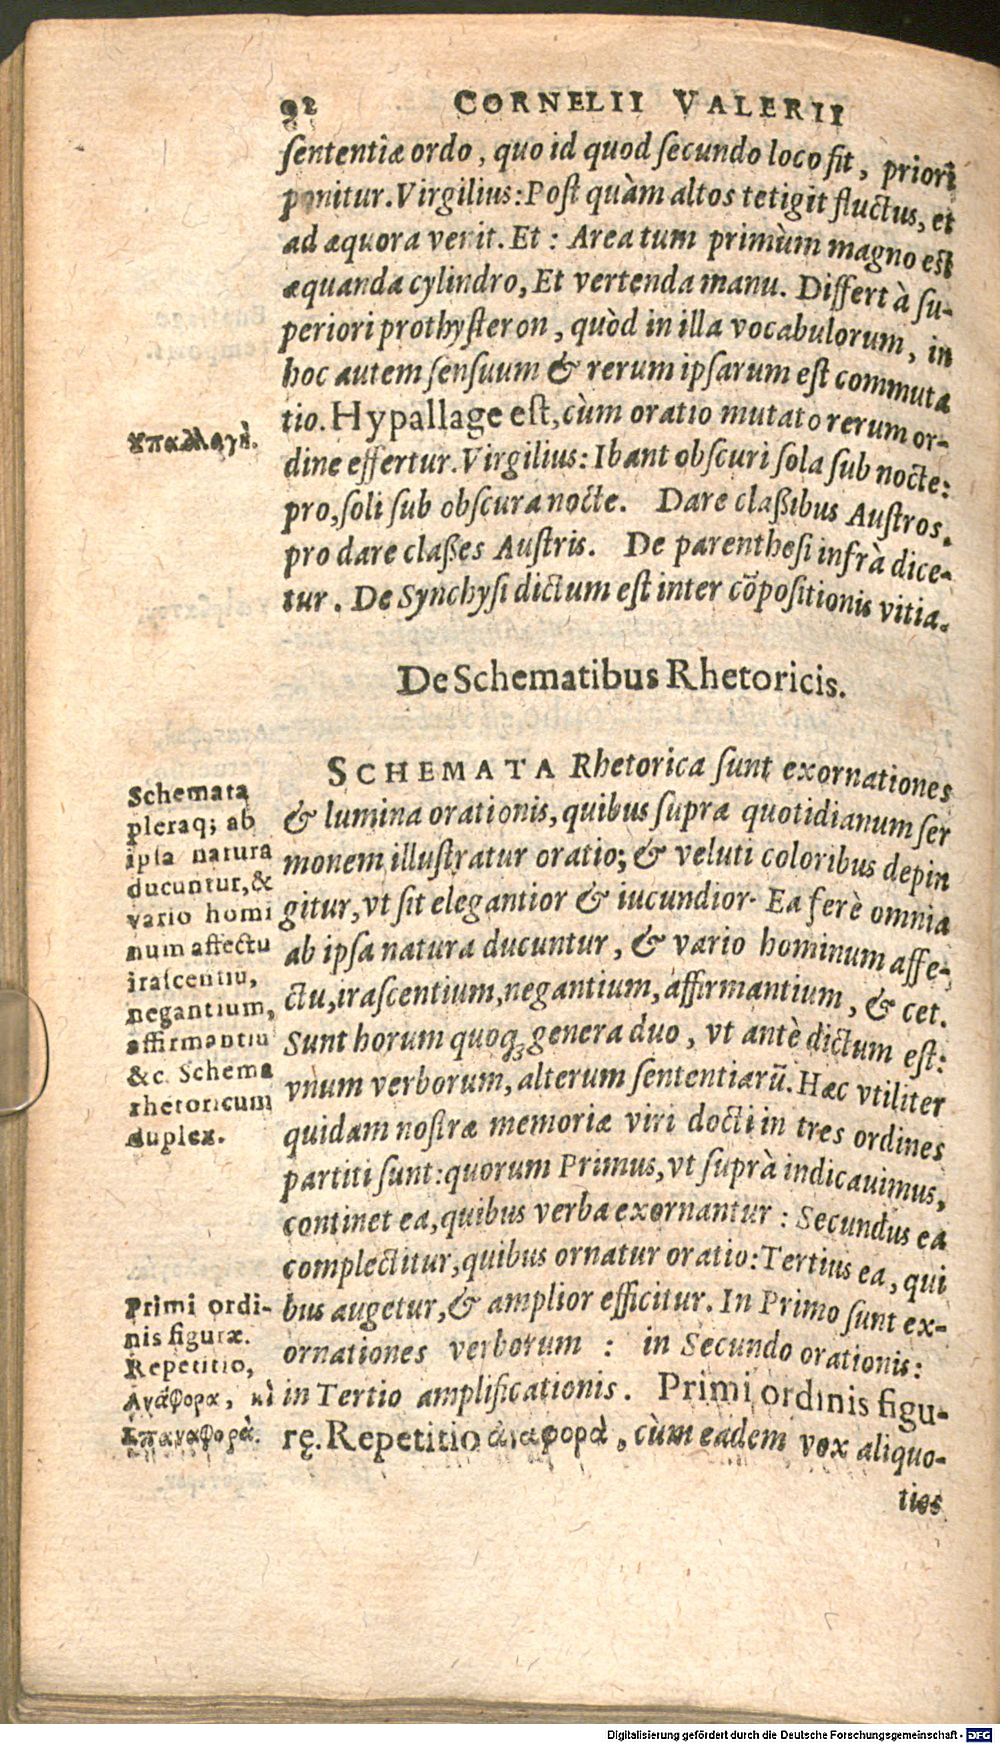 92 CORNELII VALERII
ſententiæ ordo, quo id quod ſecundo loco fit, priori
ponitur. Virgilius: Poſt quàm altos tetigit fluctus, et
ad æquora venit. Et: Area tum primùm magno eſt
æquanda cylindro, Et vertenda manu. Differt à ſu-
periori prothyſteron, quòd in illa vocabulorum, in
hoc autem ſenſuum & rerum ipſarum eſt commuta
tio. Hypallage eſt, cùm oratio mutato rerum or-
dine effertur. Virgilius: Ibant obſcuri ſola ſub nocte:
pro, ſoli ſub obſcura nocte. Dare claßibus Auſtros.
pro dare claßes Auſtris. De parentheſi infrà dice-
tur. De Synchyſi dictum eſt inter cōpoſitionis vitia.
Υπαλλαγὴ.
De Schematibus Rhetoricis.
SCHEMATA Rhetorica ſunt exornationes
& lumina orationis, quibus ſupra quotidianum ſer
monem illuſtratur oratio; & veluti coloribus depin
gitur, vt ſit elegantior & iucundior. Ea ferè omnia
ab ipſa natura ducuntur, & vario hominum affe-
ctu, iraſcentium, negantium, affirmantium, & cet.
Sunt horum quoq; genera duo, vt antè dictum eſt:
vnum verborum, alterum ſententiarū. Hæc vtiliter
quidam noſtræ memoriæ viri docti in tres ordines
partiti ſunt: quorum Primus, vt ſuprà indicauimus,
continet ea, quibus verba exornantur: Secundus ea
complectitur, quibus ornatur oratio: Tertius ea, qui
bus augetur, & amplior efficitur. In Primo ſunt ex-
ornationes verborum: in Secundo orationis:
in Tertio amplificationis. Primi ordinis figu-
rę. Repetitio ἀναφορὰ, cùm eadem vox aliquo-
ties
Schemata
pleraq; ab
ipſa natura
ducuntur, &
vario homi
num affectu
iraſcentiū,
negantium,
affirmantiū
&c. Schema
rhetoricum
duplex.
Primi ordi-
nis figuræ.
Repetitio,
Αναφορα, κὶ
Επαναφορὰ.
Digitalisierung gefördert durch die Deutsche Forschungsgemeinschaft - DFG